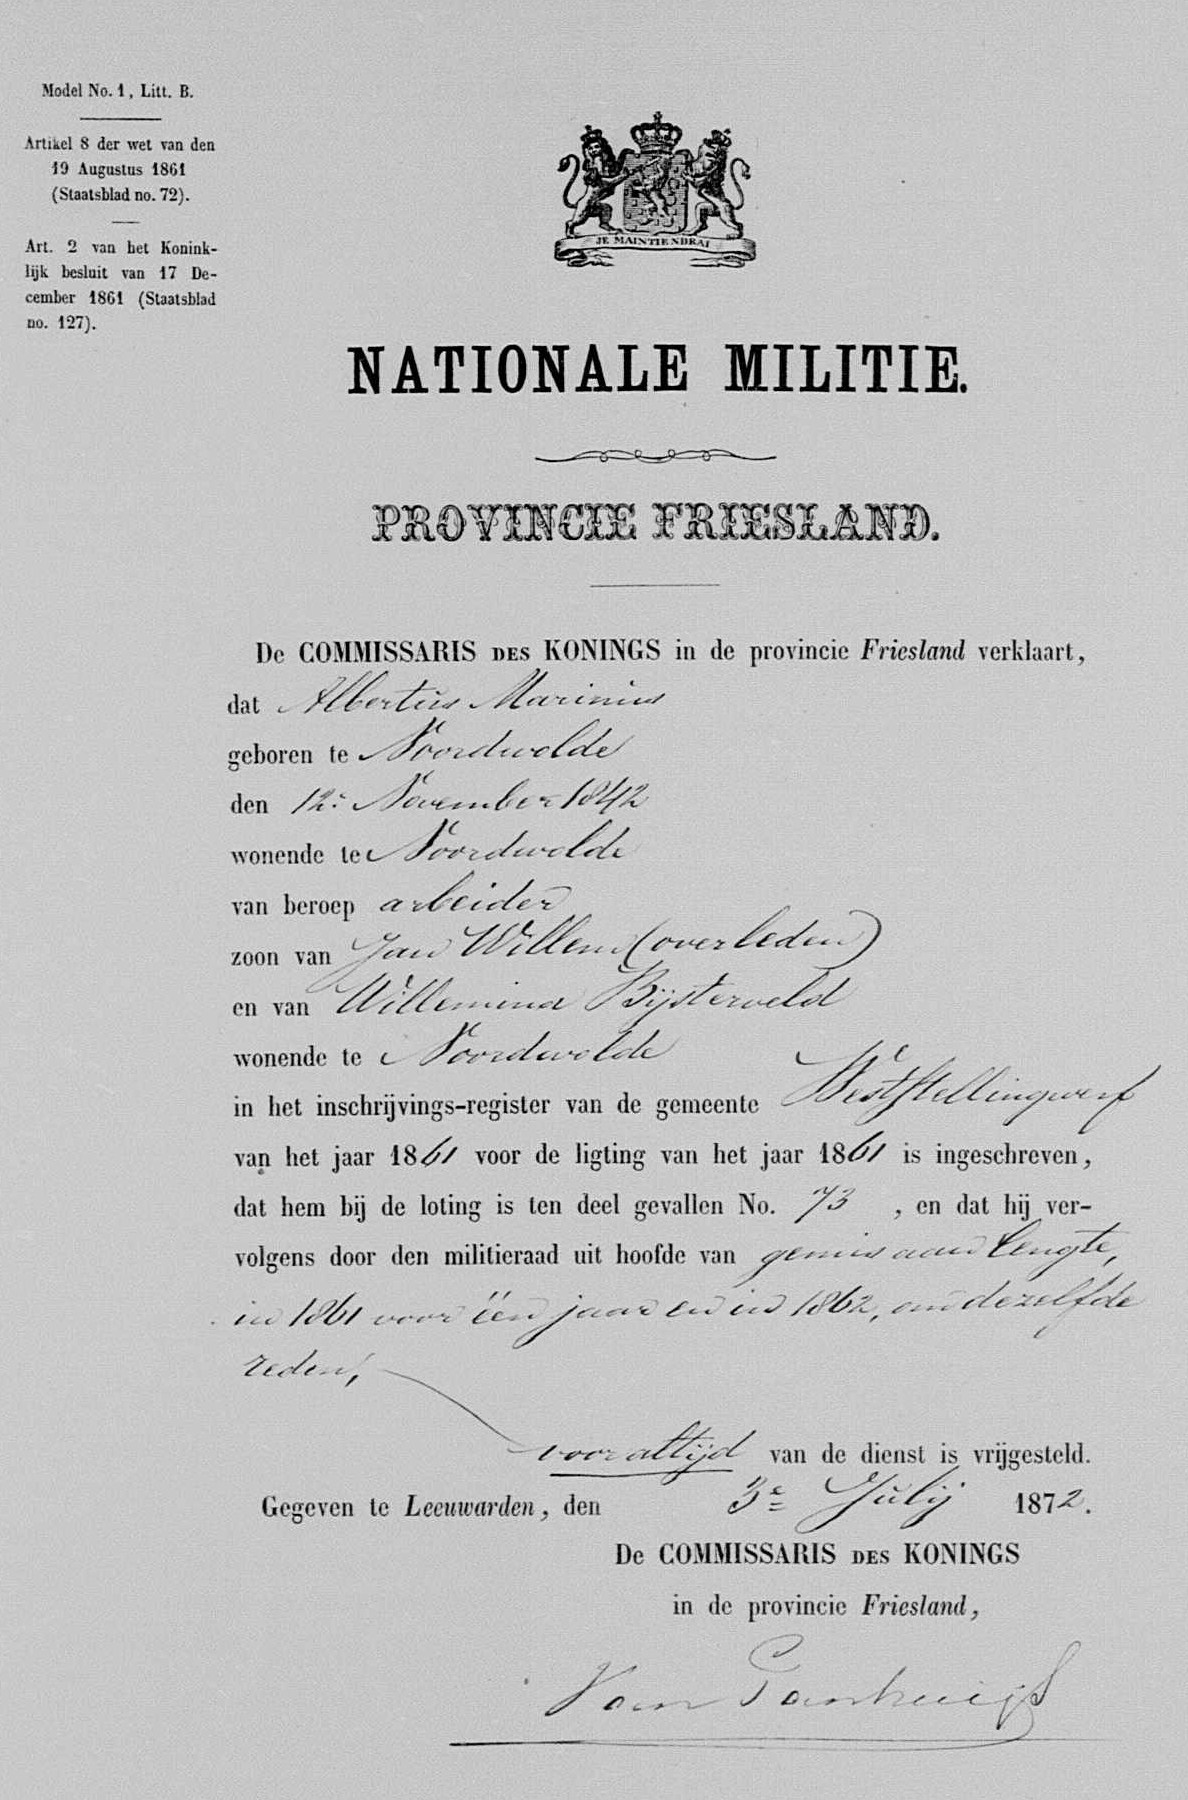 Model No. 1, Litt. B.
Artikel 8 der wet van den
19 Augustus 1861
(Staatsblad no. 72).
Art. 2 van het Konink-
lijk besluit van 17 De-
cember 1861 (Staatsblad
no. 127).
JE MAINTIENDRAI
NATIONALE MILITIE.
PROVINCIE FRIESLAND.
De COMMISSARIS DES KONINGS in de provincie Friesland verklaart,
dat Albertus Marinus
geboren te Noordwolde
den 12e November 1842
wonende te Noordwolde
van beroep arbeider
zoon van Jan Willem (overleden)
en van Willemina Bijsterveld
wonende te Noordwolde
in het inschrijvings-register van de gemeente Weststellingwerf
van het jaar 1861 voor de ligting van het jaar 1861 is ingeschreven,
dat hem bij de loting is ten deel gevallen No. 73, en dat hij ver-
volgens door den militieraad uit hoofde van gemis aan lengte,
in 1861 voor een jaar en in 1862, om dezelfde
reden,
voor altijd van de dienst is vrijgesteld.
Gegeven te Leeuwarden, den 3e Julij 1872.
De COMMISSARIS DES KONINGS
in de provincie Friesland,
Van Panhuijs